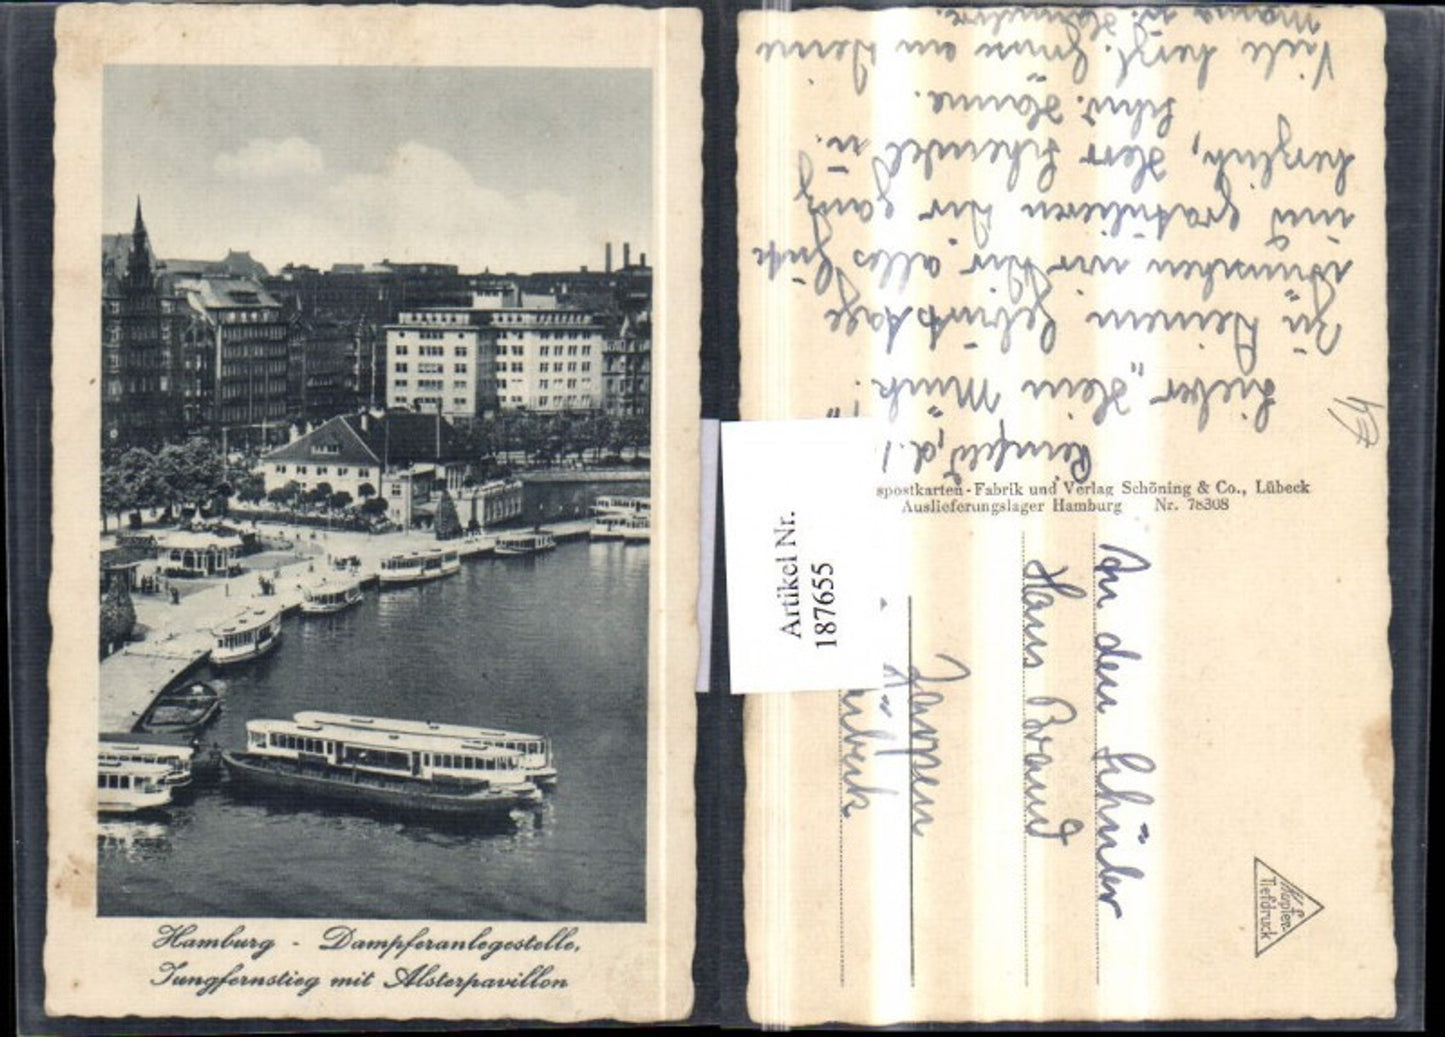 Hamburg - Dampferanlegestelle,
Jungfernstieg mit Alsterpavillon
Artikel Nr.
187655
Reinfeld, d. 1
Lieber „Hein Mück"!
Zu Deinem Geburtstage
wünschen wir Dir alles Gute
und gratulieren Dir ganz
herzlich, Herr Schendel u.
Schw. Hanne.
Viele herzl. Grüße an Deine
Mama u.
spostkarten-Fabrik und Verlag Schöning & Co., Lübeck
Auslieferungslager Hamburg Nr. 78308
An den Schüler
Hans Brand
Kupfer
Tiefdruck